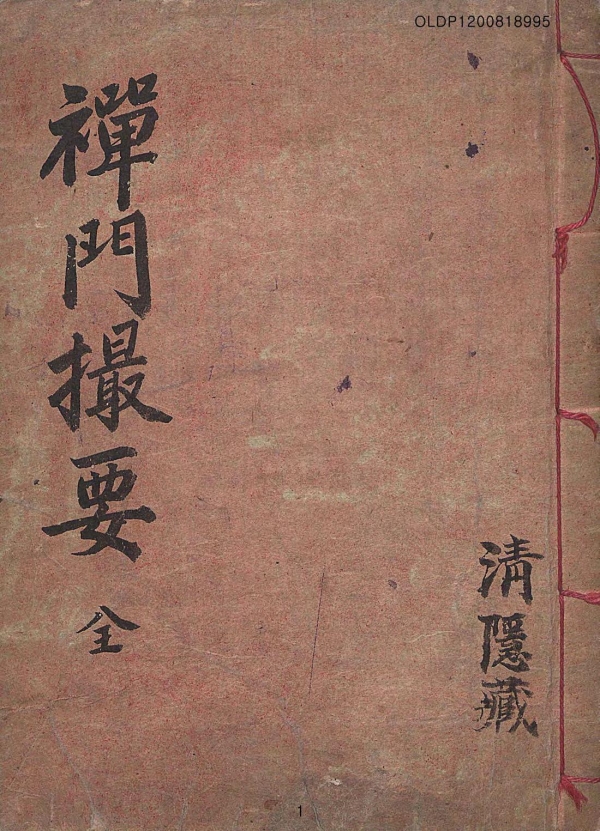 OLDP1200818995
禪門撮要 全
清隱藏
1